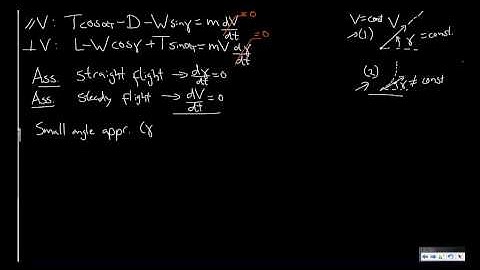 //V: Tcosα_T - D - Wsinγ = m dV/dt = 0
⊥V: L - Wcosγ + Tsinα_T = mV dγ/dt = 0
Ass. Straight flight → dγ/dt = 0
Ass. Steady flight → dV/dt = 0
Small angle appr. (γ
V=const V
→(1) γ = const.
(2)
γ ≠ const